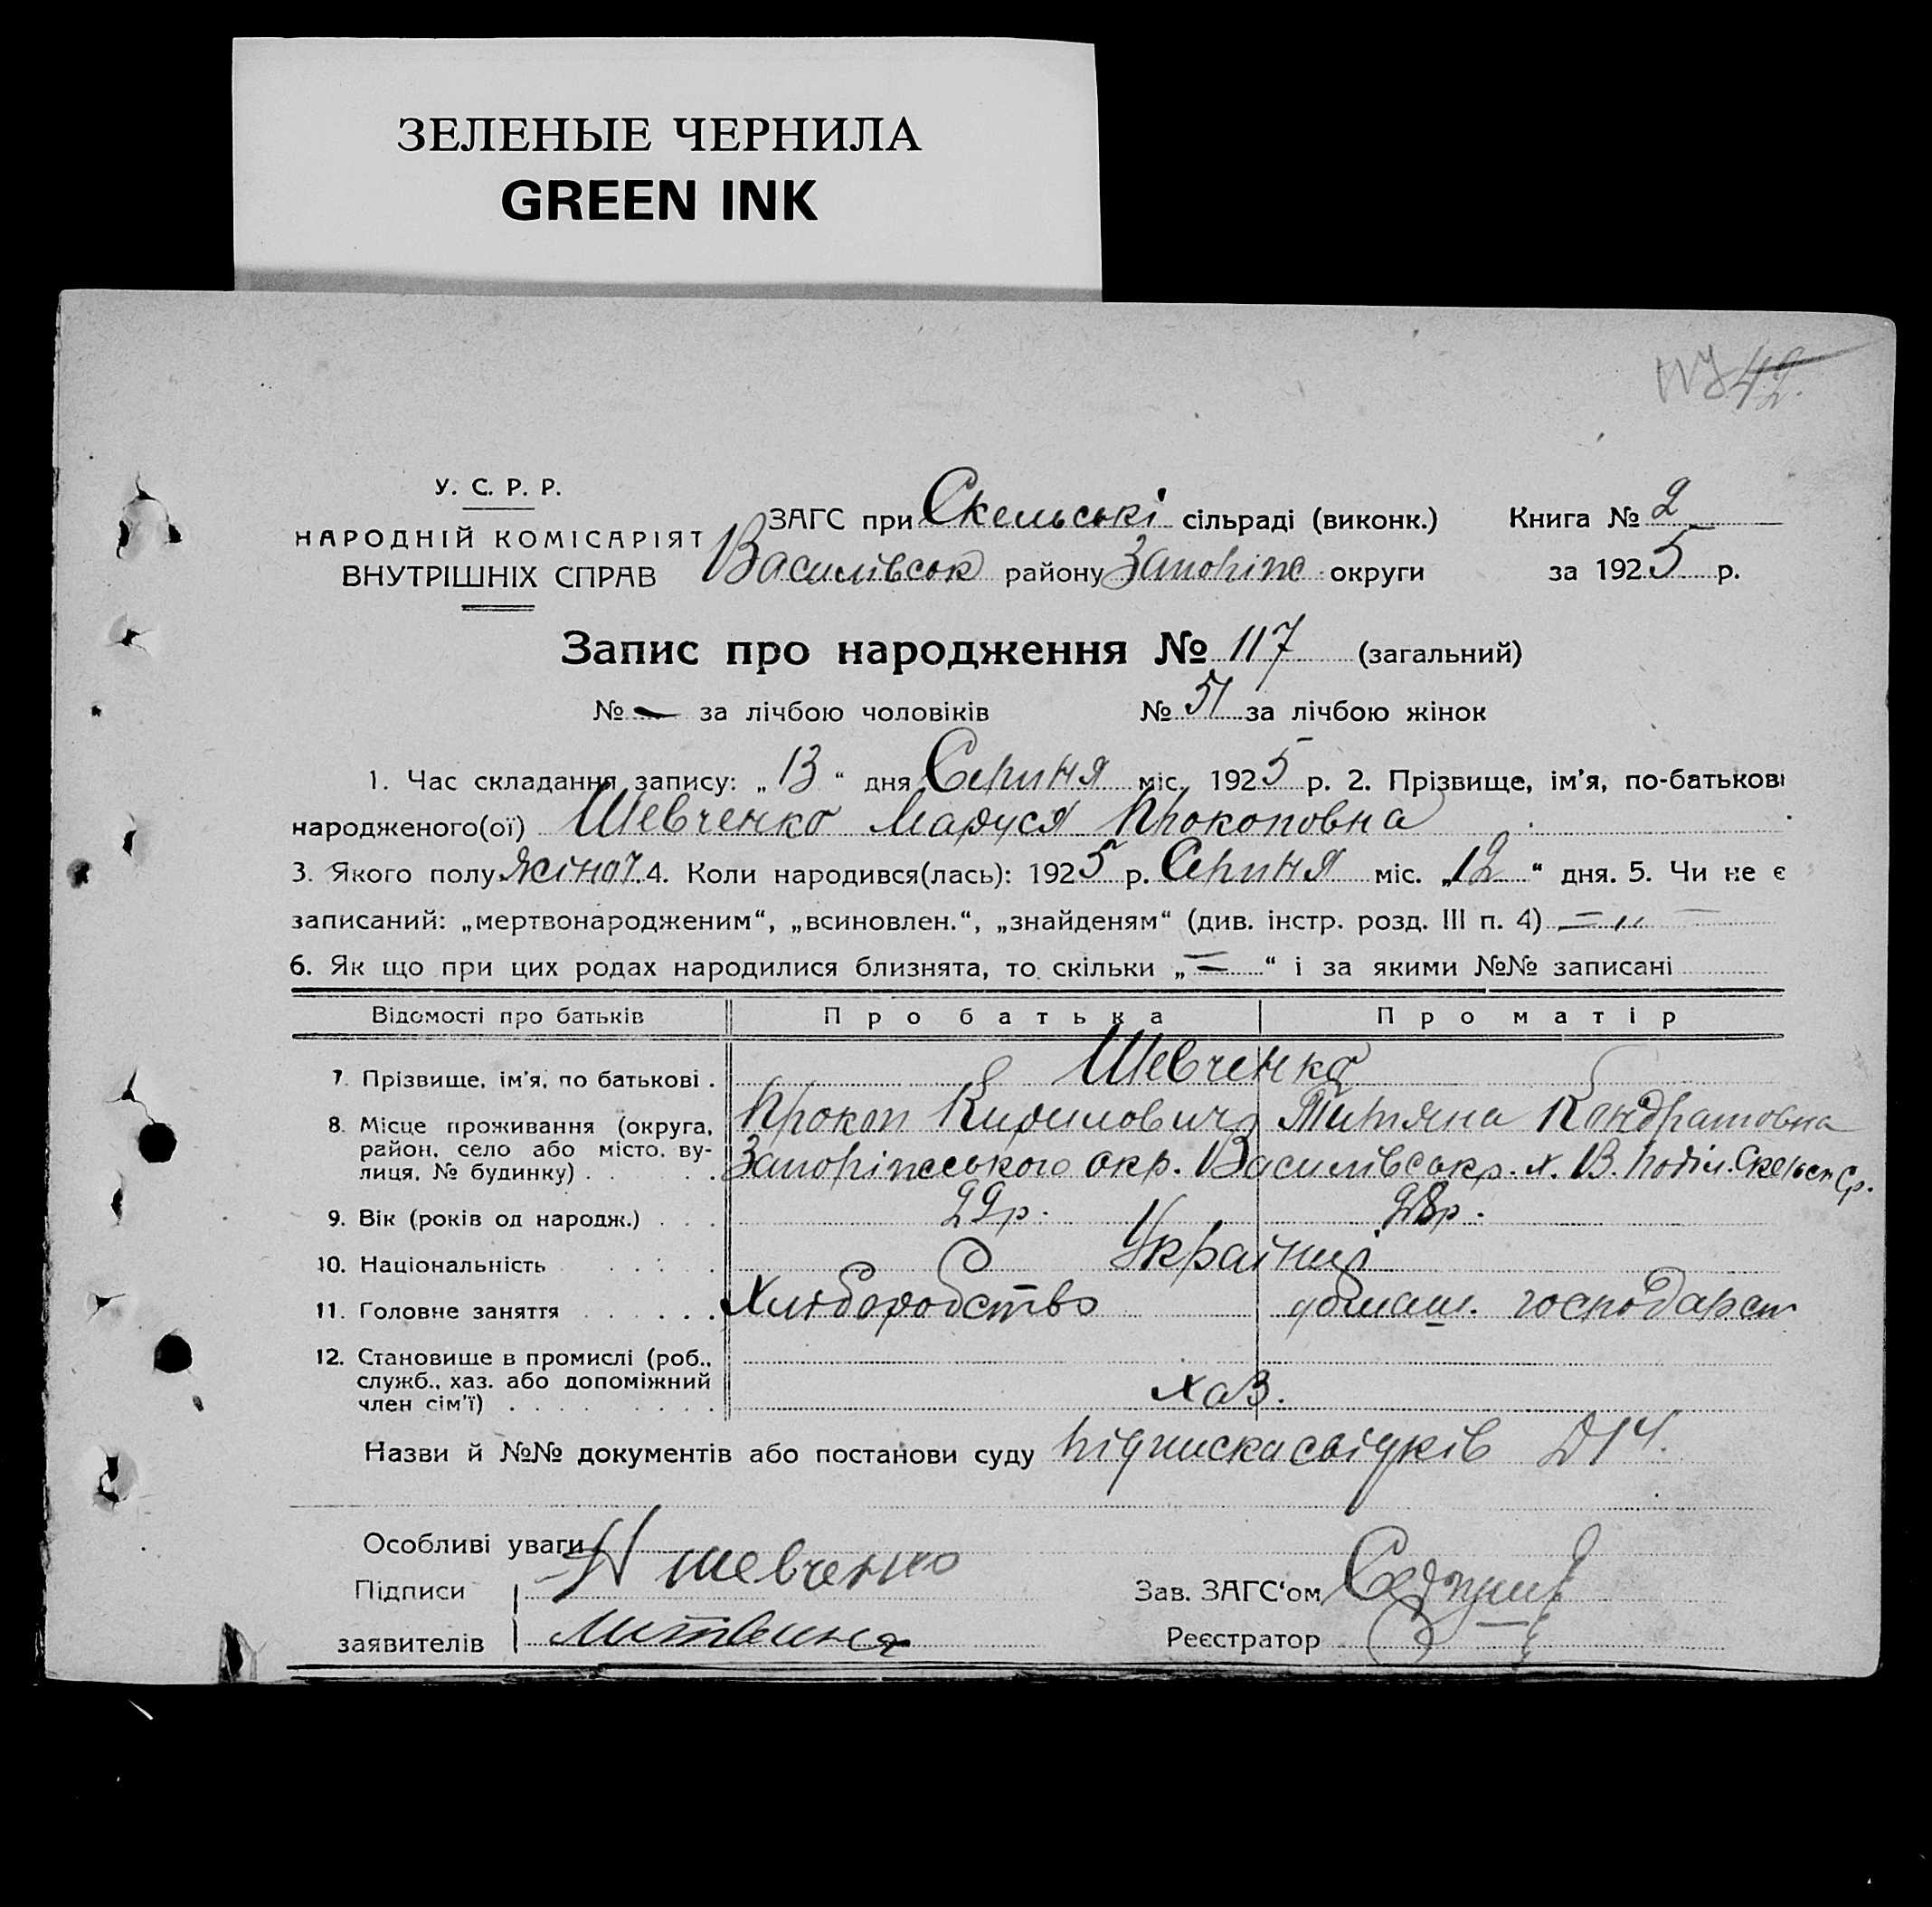 ЗЕЛЕНЫЕ ЧЕРНИЛА
GREEN INK
42.
У. С. Р. Р.
НАРОДНІЙ КОМІСАРІЯТ
ВНУТРІШНІХ СПРАВ
ЗАГС при Скельські сільраді (виконк.) Книга № 2
Василівськ району Запоріпс округи за 1925 р.
Запис про народження № 117 (загальний)
№ — за лічбою чоловіків № 51 за лічбою жінок
1. Час складання запису: „ 13 “ дня Серпня міс. 1925 р. 2. Прізвище, ім’я, по-батькові
народженого(ої) Шевченко Маруся Прокоповна
3. Якого полу жіноч. 4. Коли народився(лась): 1925 р. Серпня міс. „12 “ дня. 5. Чи не є
записаний: „мертвонародженим“, „всиновлен.“, „знайденям“ (див. інстр. розд. III п. 4) — „ —
6. Як що при цих родах народилися близнята, то скільки „ — “ і за якими №№ записані
Відомості про батьків Про батька Про матір
7. Прізвище, ім’я, по батькові . Шевченко
Прокоп Кирилович Титяна Кондратовна
8. Місце проживання (округа,
район, село або місто, ву-
лиця, № будинку) . . . . Запоріпського окр. Василівс окр. х. В. Поділ. Скельск Ср.
9. Вік (років од народж.) . . . 29р. 28р.
10. Національність . . . . Україниі
11. Головне заняття . . . . . . Хліборобство домаш. господарст
12. Становище в промислі (роб.,
служб., хаз. або допоміжний
член сім’ї) . . . . . . . . . хаз.
Назви й №№ документів або постанови суду Підписка свідків Д14.
Особливі уваги
Підписи Шевченко Зав. ЗАГС‘ом
заявителів Литвина Реєстратор